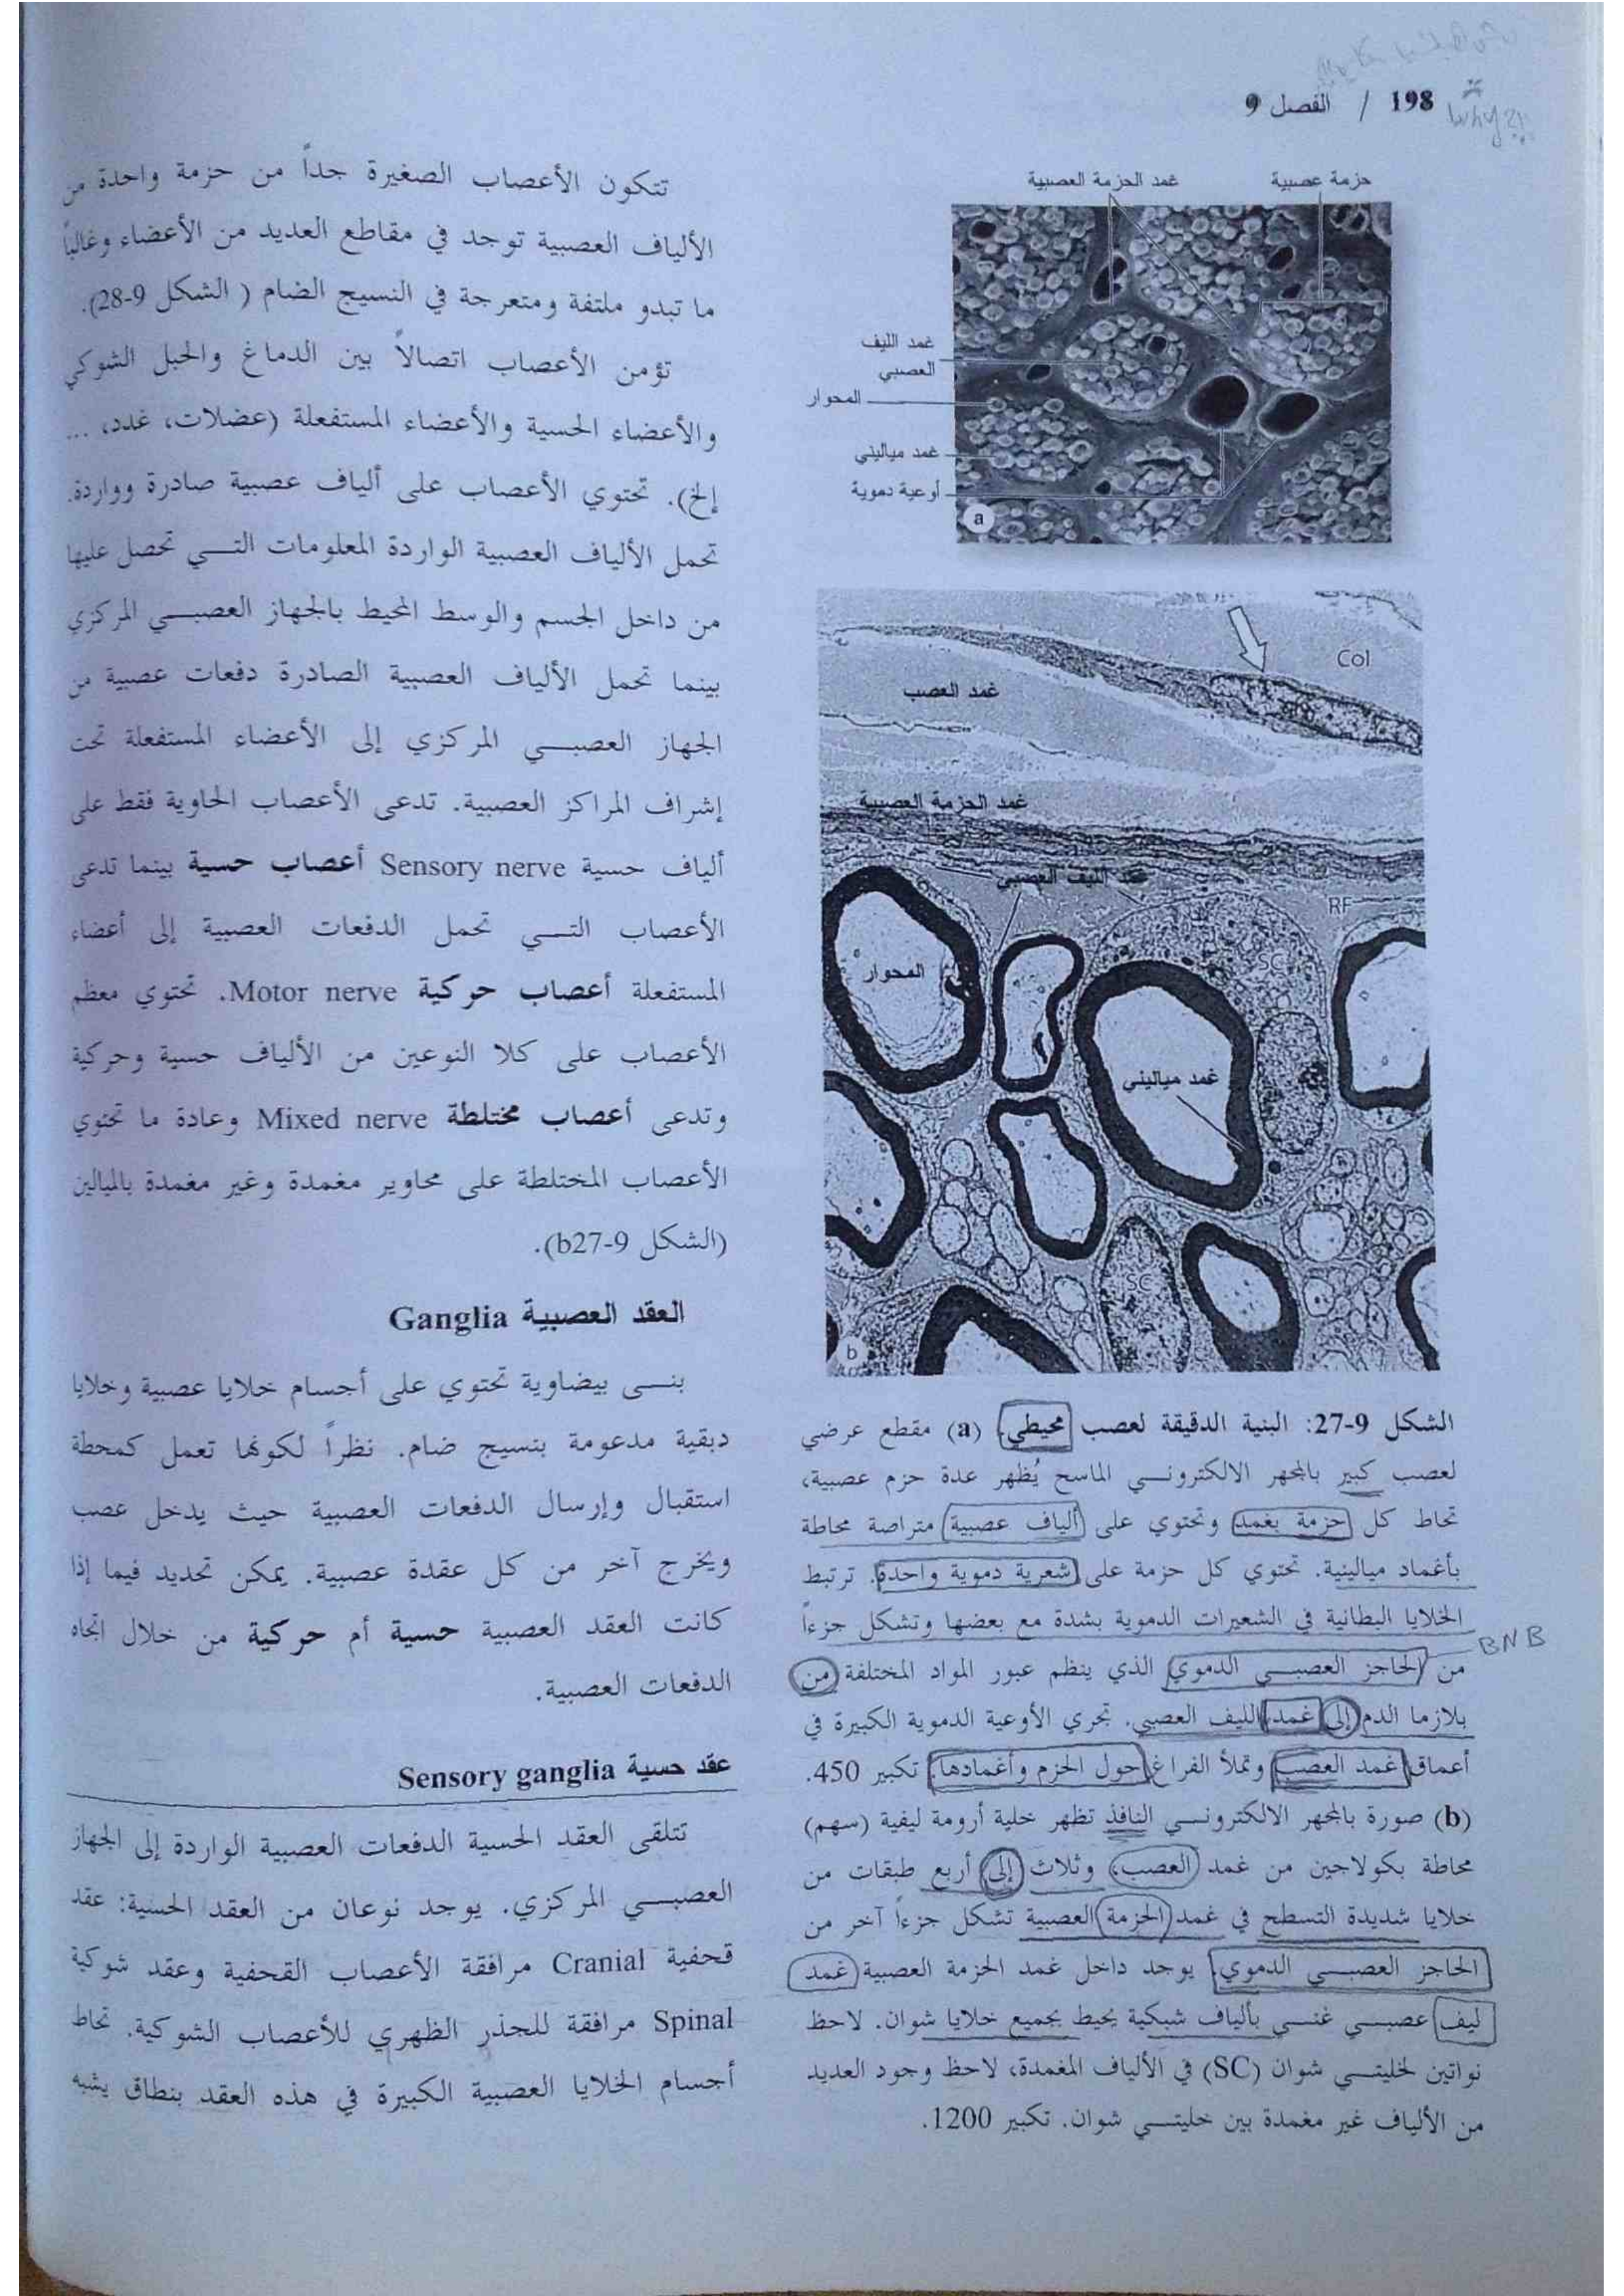 198 / الفصل 9
Why?!
حزمة عصبية
غمد الحزمة العصبية
غمد الليف
العصبي
المحوار
غمد مياليني
أوعية دموية
a
Col
غمد العصب
غمد الحزمة العصبية
غمد الليف العصبي
RF
SC
المحوار
غمد مياليني
SC
b
الشكل 9-27: البنية الدقيقة لعصب محيطي. (a) مقطع عرضي
لعصب كبير بالمجهر الالكترونـــي الماسح يُظهر عدة حزم عصبية،
تحاط كل حزمة بغمد وتحتوي على ألياف عصبية متراصة محاطة
بأغماد ميالينية. تحتوي كل حزمة على شعرية دموية واحدة. ترتبط
الخلايا البطانية في الشعيرات الدموية بشدة مع بعضها وتشكل جزءاً
من الحاجز العصبـــي الدموي الذي ينظم عبور المواد المختلفة من
BNB
بلازما الدم إلى غمد الليف العصبي. تجري الأوعية الدموية الكبيرة في
أعماق غمد العصب وتملأ الفراغ حول الحزم وأغمادها. تكبير 450.
(b) صورة بالمجهر الالكترونـــي النافذ تظهر خلية أرومة ليفية (سهم)
محاطة بكولاجين من غمد العصب، وثلاث إلى أربع طبقات من
خلايا شديدة التسطح في غمد الحزمة العصبية تشكل جزءاً آخر من
الحاجز العصبـــي الدموي. يوجد داخل غمد الحزمة العصبية غمد
ليف عصبـــي غنـــي بألياف شبكية يحيط بجميع خلايا شوان. لاحظ
نواتين لخليتـــي شوان (SC) في الألياف المغمدة، لاحظ وجود العديد
من الألياف غير مغمدة بين خليتـــي شوان. تكبير 1200.
تتكون الأعصاب الصغيرة جداً من حزمة واحدة من
الألياف العصبية توجد في مقاطع العديد من الأعضاء وغالباً
ما تبدو ملتفة ومتعرجة في النسيج الضام ( الشكل 9-28).
تؤمن الأعصاب اتصالاً بين الدماغ والحبل الشوكي
والأعضاء الحسية والأعضاء المستفعلة (عضلات، غدد، ...
إلخ). تحتوي الأعصاب على ألياف عصبية صادرة وواردة.
تحمل الألياف العصبية الواردة المعلومات التـــي تحصل عليها
من داخل الجسم والوسط المحيط بالجهاز العصبـــي المركزي
بينما تحمل الألياف العصبية الصادرة دفعات عصبية من
الجهاز العصبـــي المركزي إلى الأعضاء المستفعلة تحت
إشراف المراكز العصبية. تدعى الأعصاب الحاوية فقط على
ألياف حسية Sensory nerve أعصاب حسية بينما تدعى
الأعصاب التـــي تحمل الدفعات العصبية إلى أعضاء
المستفعلة أعصاب حركية Motor nerve. تحتوي معظم
الأعصاب على كلا النوعين من الألياف حسية وحركية
وتدعى أعصاب مختلطة Mixed nerve وعادة ما تحتوي
الأعصاب المختلطة على محاوير مغمدة وغير مغمدة بالميالين
(الشكل 9-b27).
العقد العصبية Ganglia
بنـــى بيضاوية تحتوي على أجسام خلايا عصبية وخلايا
دبقية مدعومة بنسيج ضام. نظراً لكونها تعمل كمحطة
استقبال وإرسال الدفعات العصبية حيث يدخل عصب
ويخرج آخر من كل عقدة عصبية. يمكن تحديد فيما إذا
كانت العقد العصبية حسية أم حركية من خلال اتجاه
الدفعات العصبية.
عقد حسية Sensory ganglia
تتلقى العقد الحسية الدفعات العصبية الواردة إلى الجهاز
العصبـــي المركزي. يوجد نوعان من العقد الحسية: عقد
قحفية Cranial مرافقة الأعصاب القحفية وعقد شوكية
Spinal مرافقة للجذر الظهري للأعصاب الشوكية. تحاط
أجسام الخلايا العصبية الكبيرة في هذه العقد بنطاق يشبه